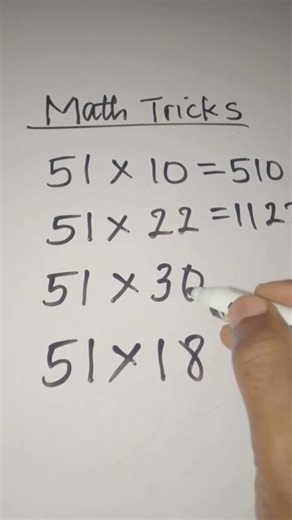 Math Tricks
51 × 10 = 510
51 × 22 = 112
51 × 30
51 × 18